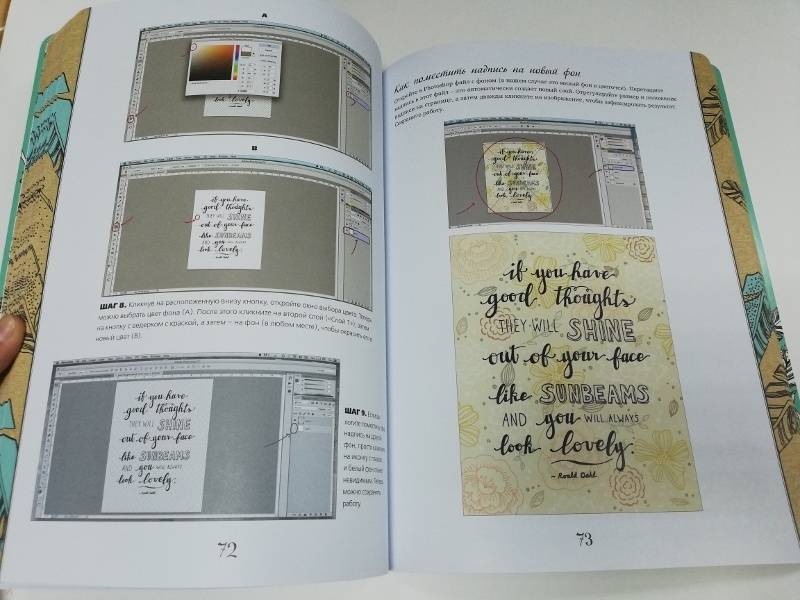 A
B
ШАГ 8. Кликнув на расположенную внизу кнопку, откройте окно выбора цвета. Теперь
можно выбрать цвет фона (А). После этого кликните на второй слой («Слой 1»), затем
на кнопку с ведерком с краской, а затем – на фон (в любом месте), чтобы окрасить его в
новый цвет (В).
if you have
good thoughts
THEY WILL SHINE
out of your face
like SUNBEAMS
AND you WILL ALWAYS
look lovely.
if you have
good thoughts
THEY WILL SHINE
out of your face
like SUNBEAMS
AND you WILL ALWAYS
look lovely.
ШАГ 9. Если вы
хотите поместить
надпись на другой
фон, просто кликните
на иконку с глазом,
и белый фон станет
невидимым. Теперь
можно сохранить
работу.
72
Как поместить надпись на новый фон
Откройте в Photoshop файл с фоном (в нашем случае это милый фон в цветочек). Перетащите
надпись в этот файл – это автоматически создаст новый слой. Отрегулируйте размер и положение
надписи на странице, а затем дважды кликните на изображение, чтобы зафиксировать результат.
Сохраните работу.
if you have
good thoughts
THEY WILL SHINE
out of your face
like SUNBEAMS
AND you WILL ALWAYS
look lovely.
if you have
good thoughts
THEY WILL SHINE
out of your face
like SUNBEAMS
AND you WILL ALWAYS
look lovely.
~ Roald Dahl
73